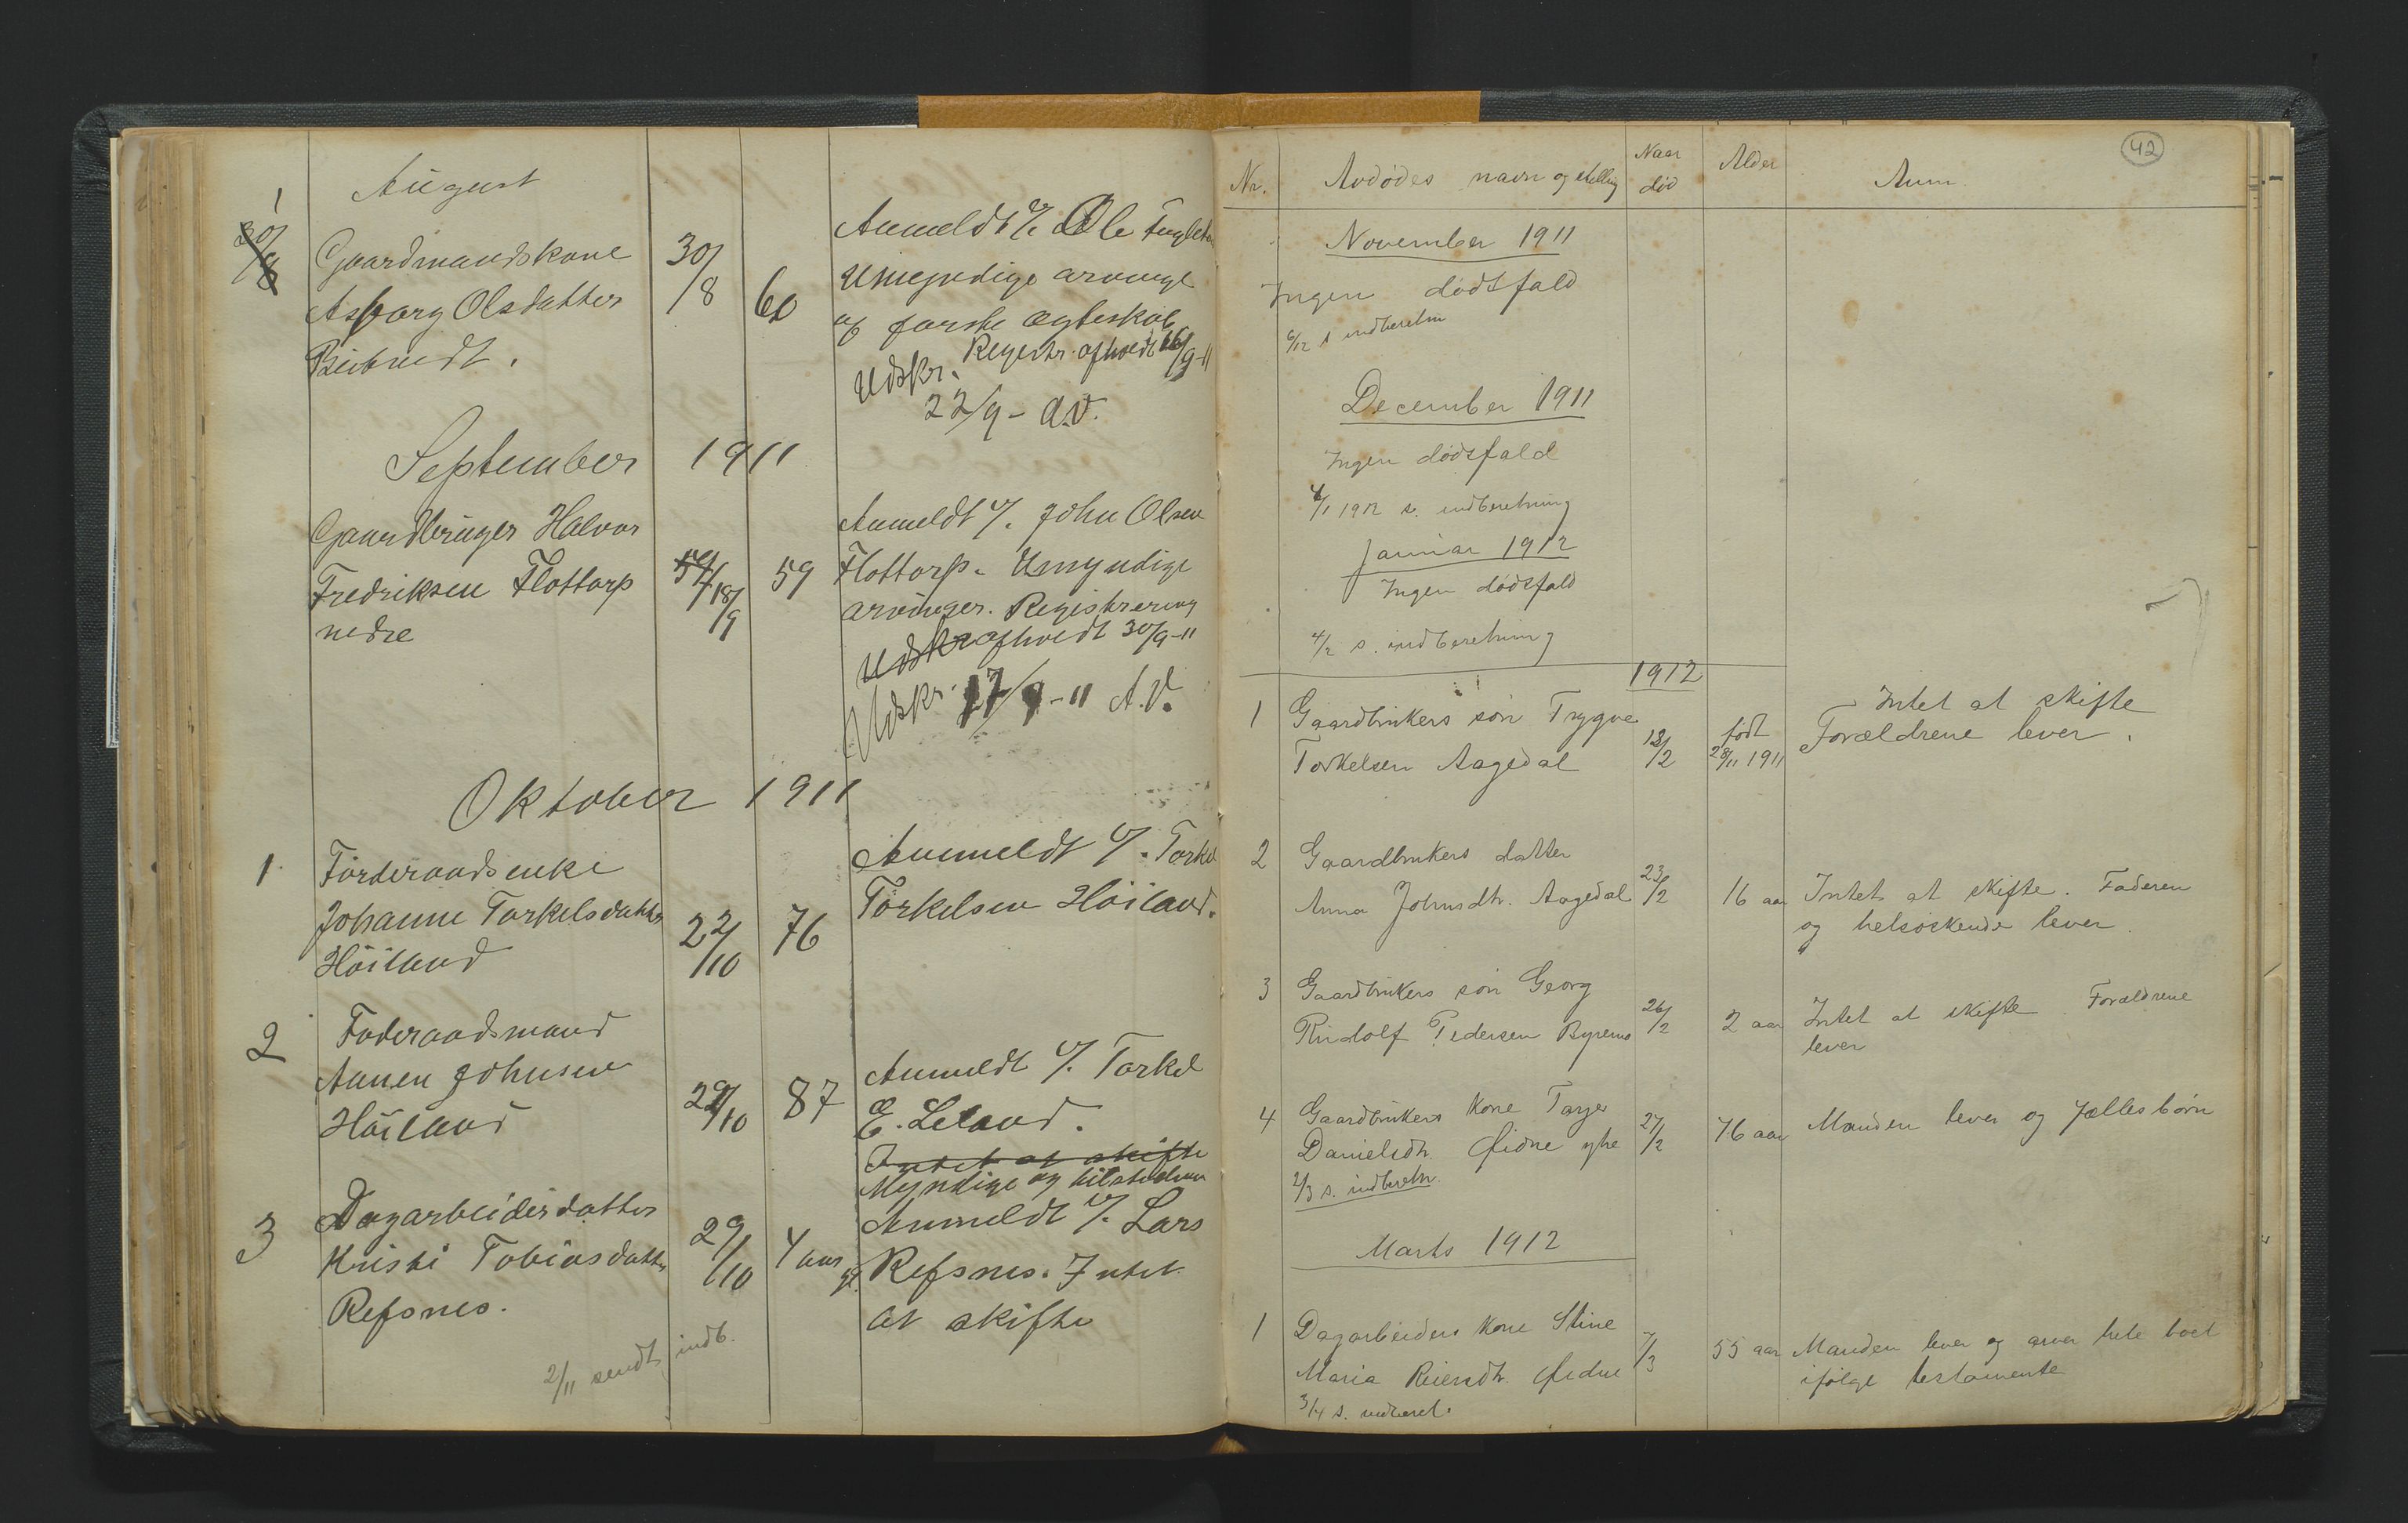 August
1
30/8 Gaardmandskone 30/8 60 Anmeldt v/. Ole
Asborg Olsdatter Umyndige arvinge
af første ægteskab
Registr. afholdt 16/9-11
Udskr.
22/9 - A.V.
September 1911
Gaardbruger Halvor Anmeldt v/. John Olsen
Fredriksen Flottorp 18/9 59 Flottorp. Umyndige
nedre arvinger. Registrering
Udskr afholdt 30/9-11
Udskr. 17/9-11 A.V.
Oktober 1911
1 Føderaadsenke Anmeldt v/. Torkel
Johanne Torkelsdatter 22/10 76 Torkelsen Höiland.
Höiland
2 Føderaadsmand
Aanen Johnsen 29/10 87 Anmeldt v/. Torkel
Höiland E. Leland.
Intet at skifte
Myndige og tilstede
3 Dagarbeiders datter 29/10 4 aar Anmeldt v/. Lars
Kristi Tobiasdatter gl. Refsnes. Intet
Refsnes. at skifte
2/11 sendt indb.
42
Nr. Avdødes navn og stilling Naar død Alder Anm
November 1911
Ingen dødsfald
6/12 s indberetn
December 1911
Ingen dødsfald
4/1 1912 s. indberetning
Januar 1912
Ingen dødsfald
4/2 s. indberetning
1912
1 Gaardbrukers søn Trygve 13/2 født Intet at skifte
Torkelsen Aagedal 28/11 1911 Forældrene lever.
2 Gaardbrukers datter
Anna Johnsdtr. Aagedal 23/2 16 aar Intet at skifte. Faderen
og helsøskende lever.
3 Gaardbrukers søn Georg
Rudolf Pedersen Byremo 26/2 2 aar Intet at skifte Forældrene
lever
4 Gaardbrukers kone Tarjer 27/2 76 aar Manden lever og fællesbørn
Danielsdtr. Øidne yhe
2/3 s. indberetn.
Marts 1912
1 Dagarbeiders kone Stine 7/3 55 aar Manden lever og arver hele boet
Maria Reiersdtr. Øidne ifølge testamente
3/4 s. indberet.